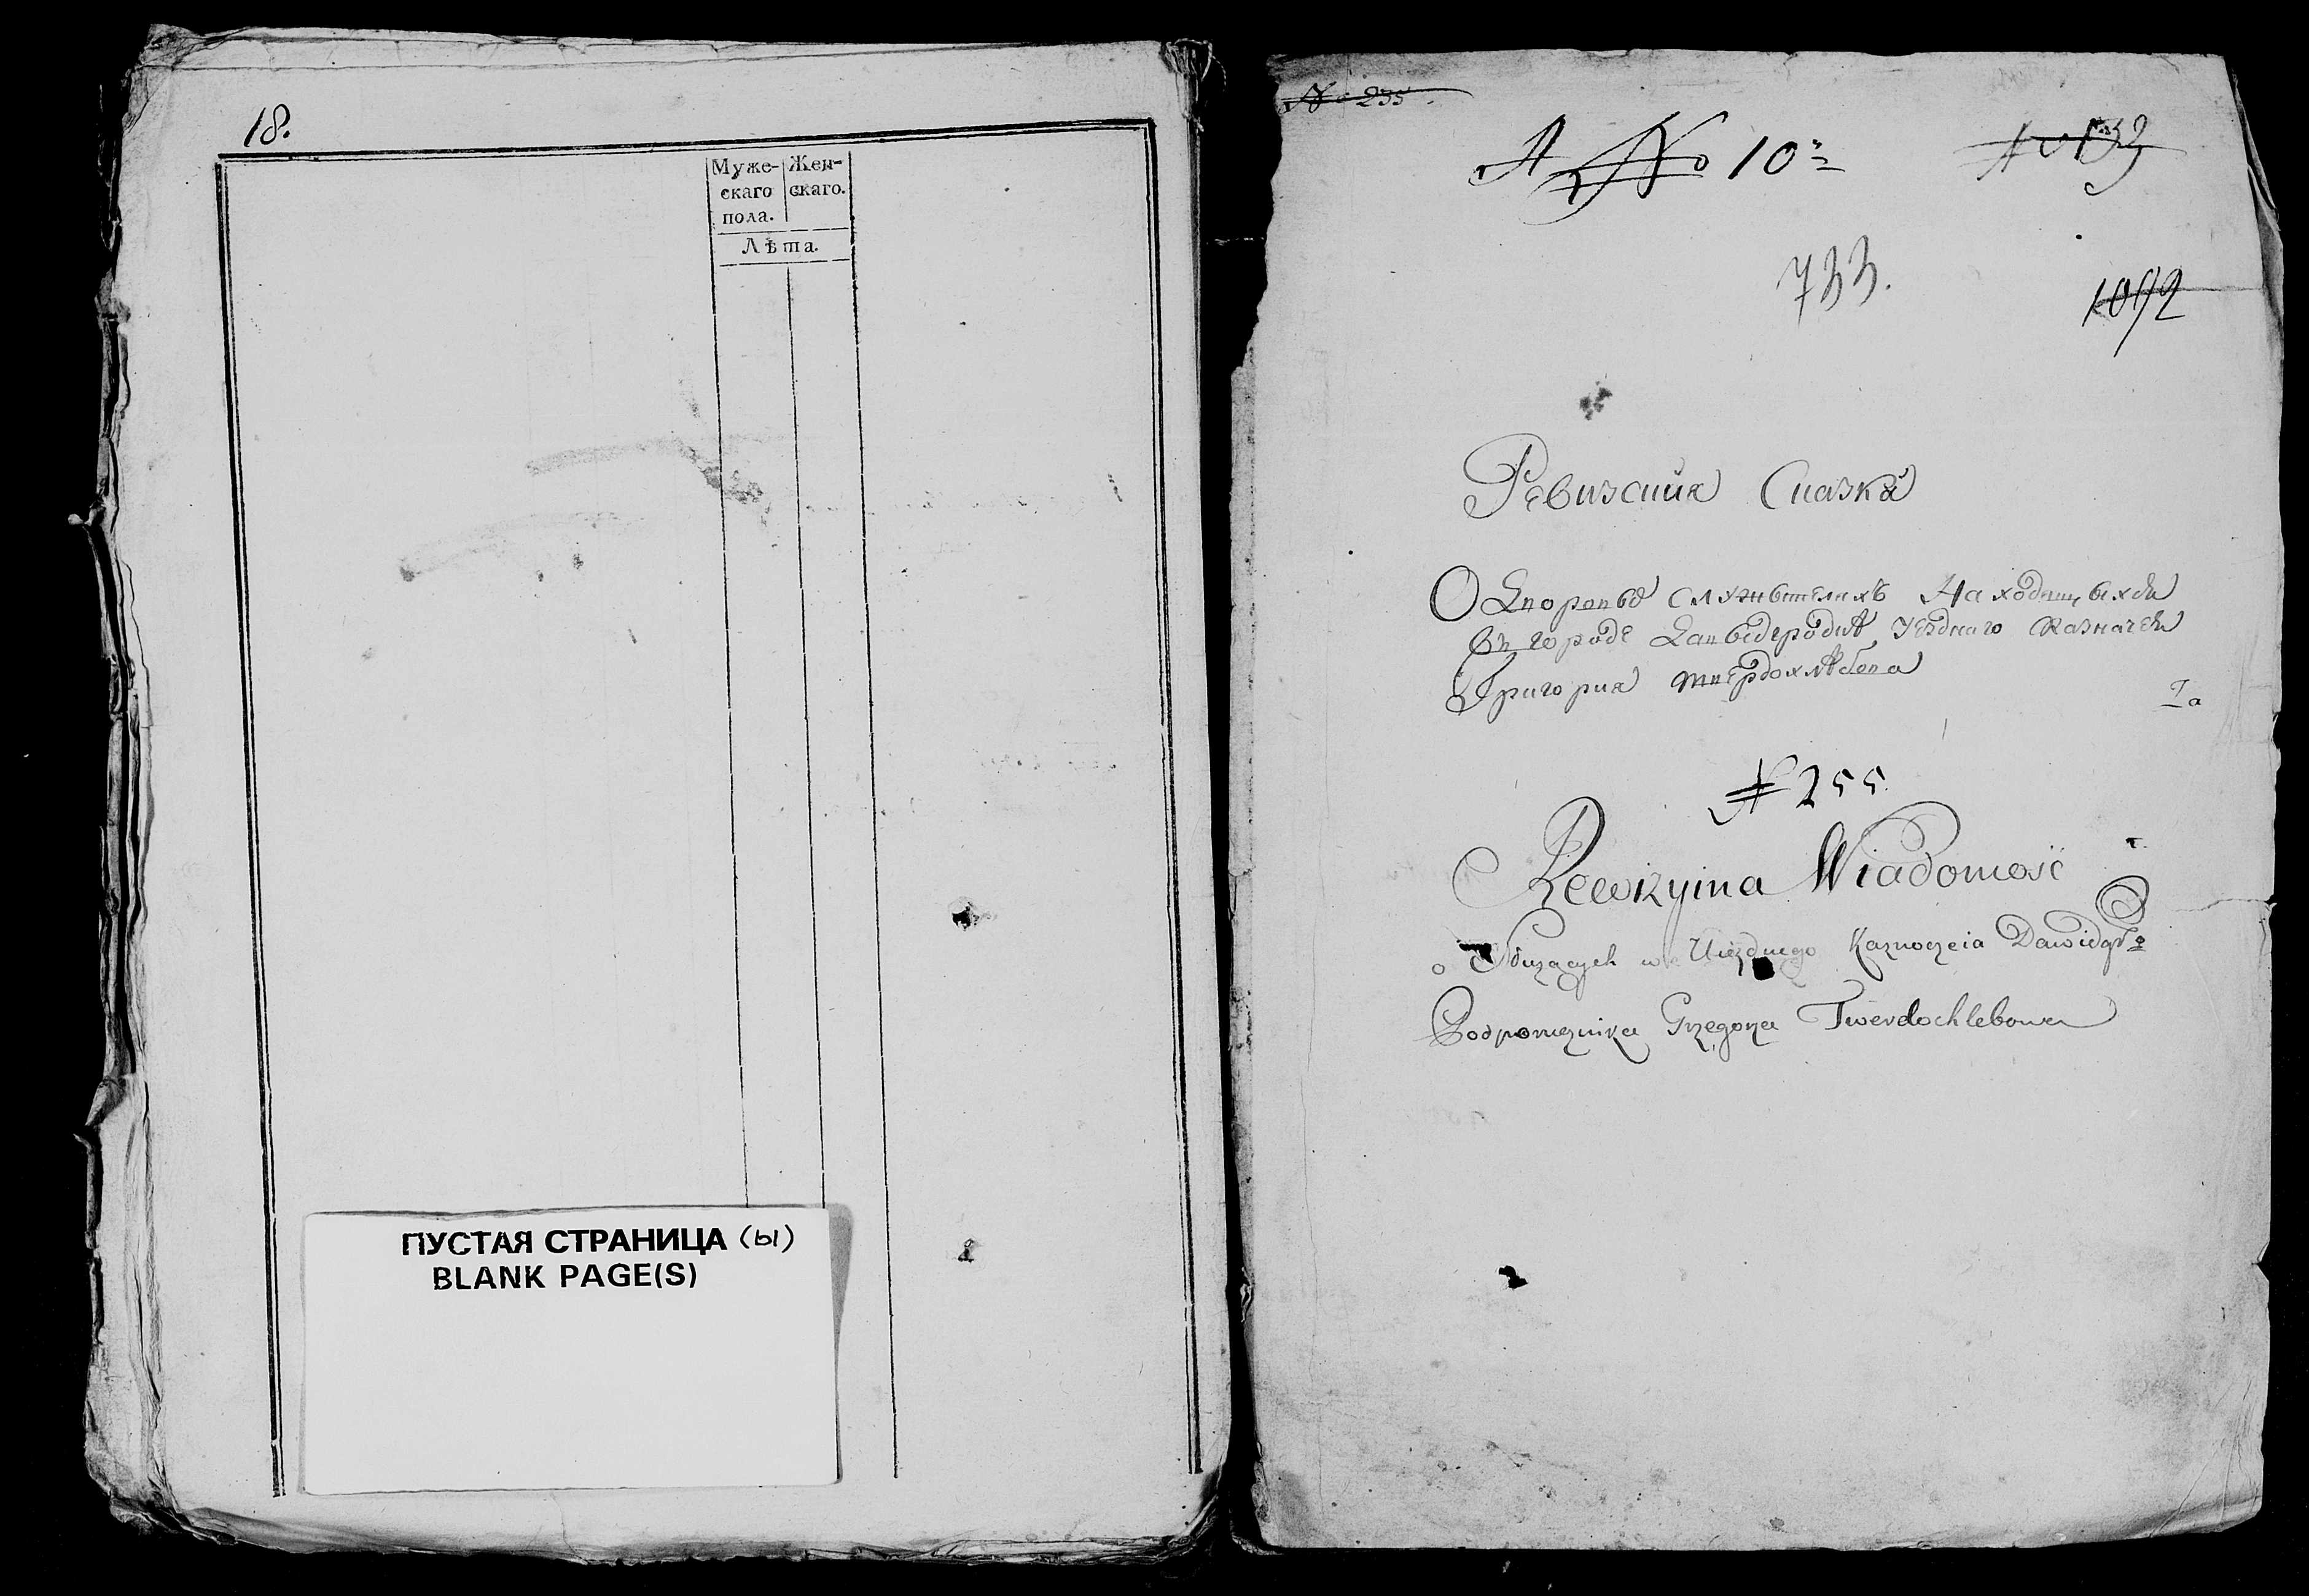 18.
Муже- Жен-
скаго скаго.
пола.
Лѣта.
ПУСТАЯ СТРАНИЦА (ы)
BLANK PAGE(S)
№ 235.
А № 10й
733.
1092
Ревизския Сказка
О Дворовыхъ служителяхъ Находящыхся
въ городе Давидгродкѣ Уезднаго Казначея
Григория твердохлѣбова
№ 255
Rewizyina Wiadomość
o Służących w Uiezdnego Kaznoczeia Dawidgr:o
Podporucznika Grzegorza Twerdochlebowa